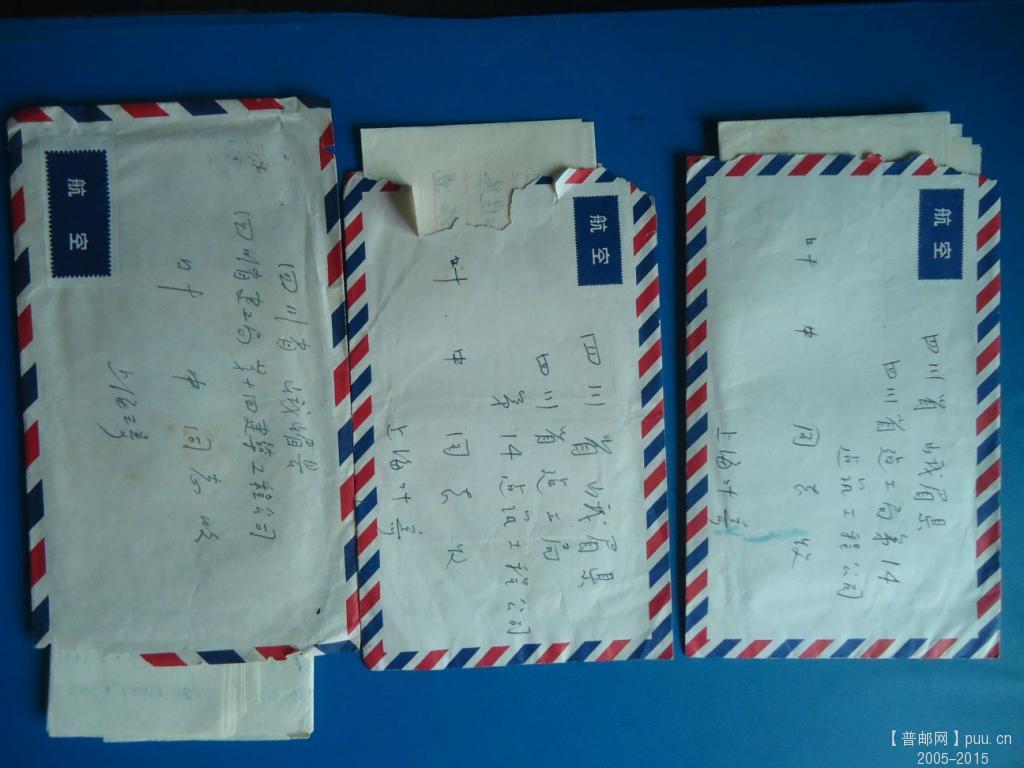 航空
四川省 峨嵋县
四川省建工局第十四建筑工程公司
叶中同志收
航空
四川省峨眉县
四川省建工局
第14建筑工程公司
叶中同志收
上海叶寄
航空
四川省峨眉县
四川省建工局第14
建筑工程公司
叶中同志收
上海叶寄
【普邮网】puu.cn
2005-2015